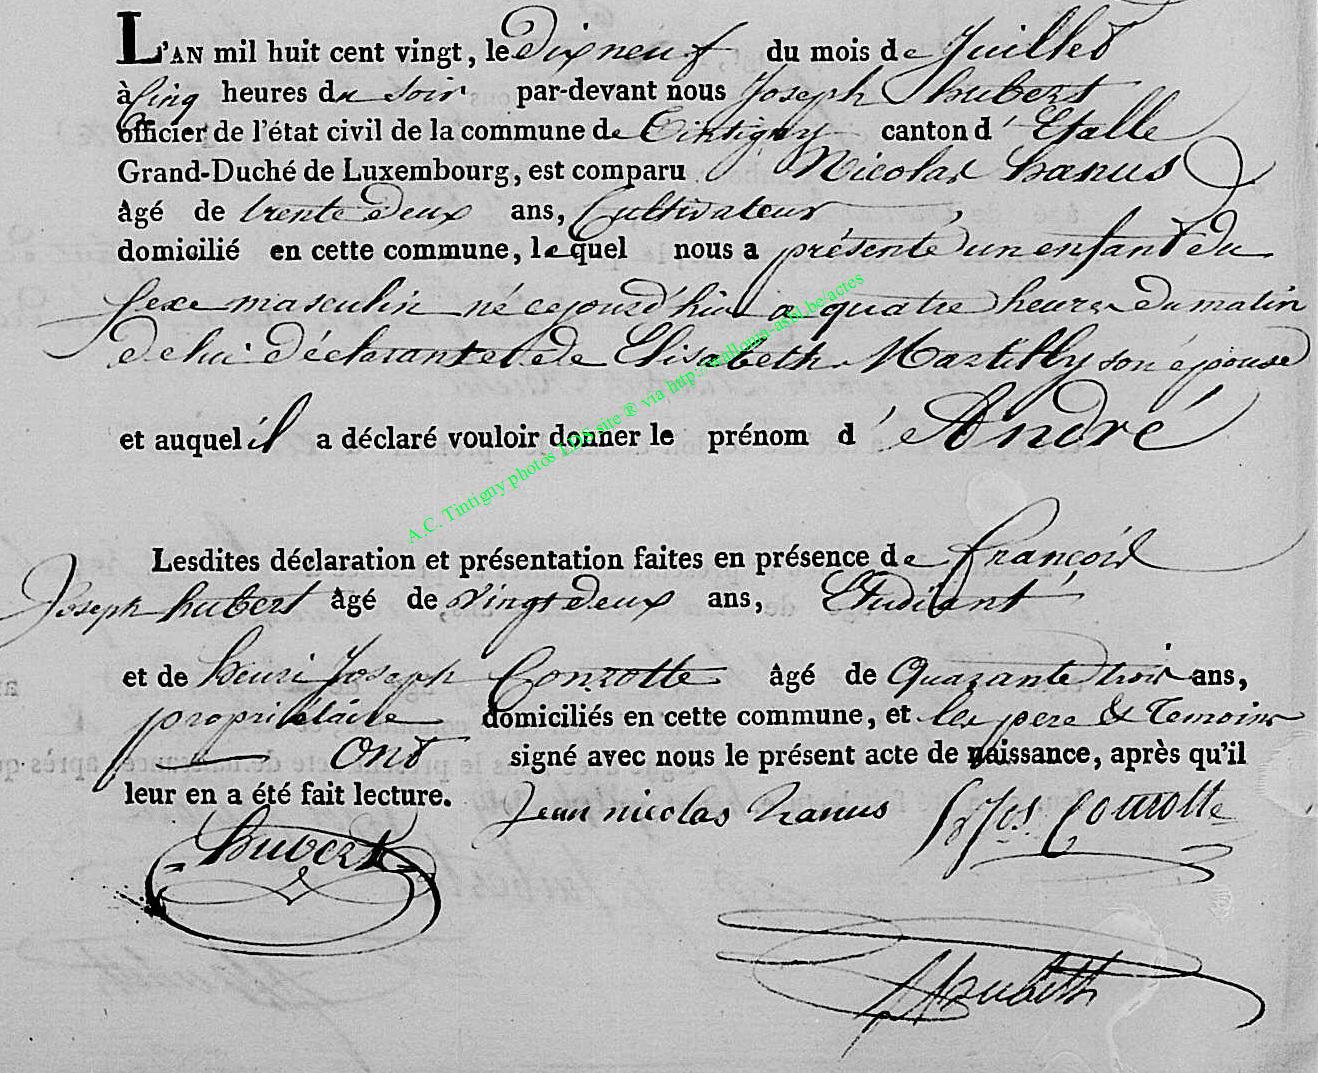 L'AN mil huit cent vingt, le Dix neuf du mois de Juillet
à Cinq heures du Soir par-devant nous Joseph hubert
officier de l'état civil de la commune de Tintigny canton d' Etalle
Grand-Duché de Luxembourg, est comparu Nicolas hanus
âgé de trente Deux ans, Cultivateur
domicilié en cette commune, lequel nous a présenté un enfant du
Sexe masculin né cejourd'hui a quatre heures du matin
de lui déclarant et de Elisabeth Martilly son épouse
et auquel il a déclaré vouloir donner le prénom d' André
Lesdites déclaration et présentation faites en présence de françois
Joseph hubert âgé de vingt deux ans, Etudiant
et de henri Joseph Conrotte âgé de Quarante trois ans,
propriétaire domiciliés en cette commune, et les pere & Temoins
ont signé avec nous le présent acte de naissance, après qu'il
leur en a été fait lecture.
Jean nicolas hanus
Conrotte
hubert
A.C. Tintigny photos LDS site ® via http://wallonia-asbl.be/actes